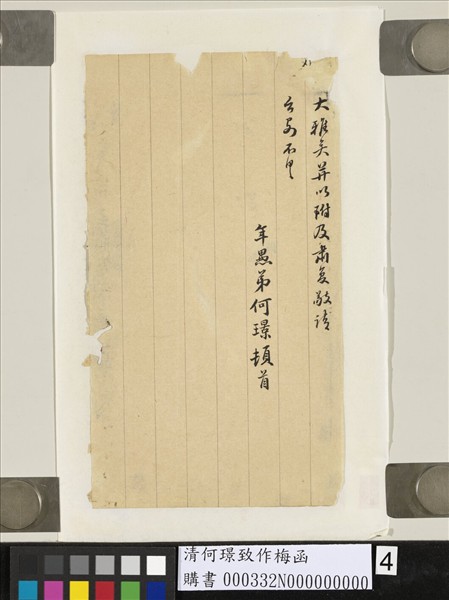 大雅矣并以附及肅复敬請
台安不具
年愚弟何璟頓首
清何璟致作梅函
購書 000332N000000000
4